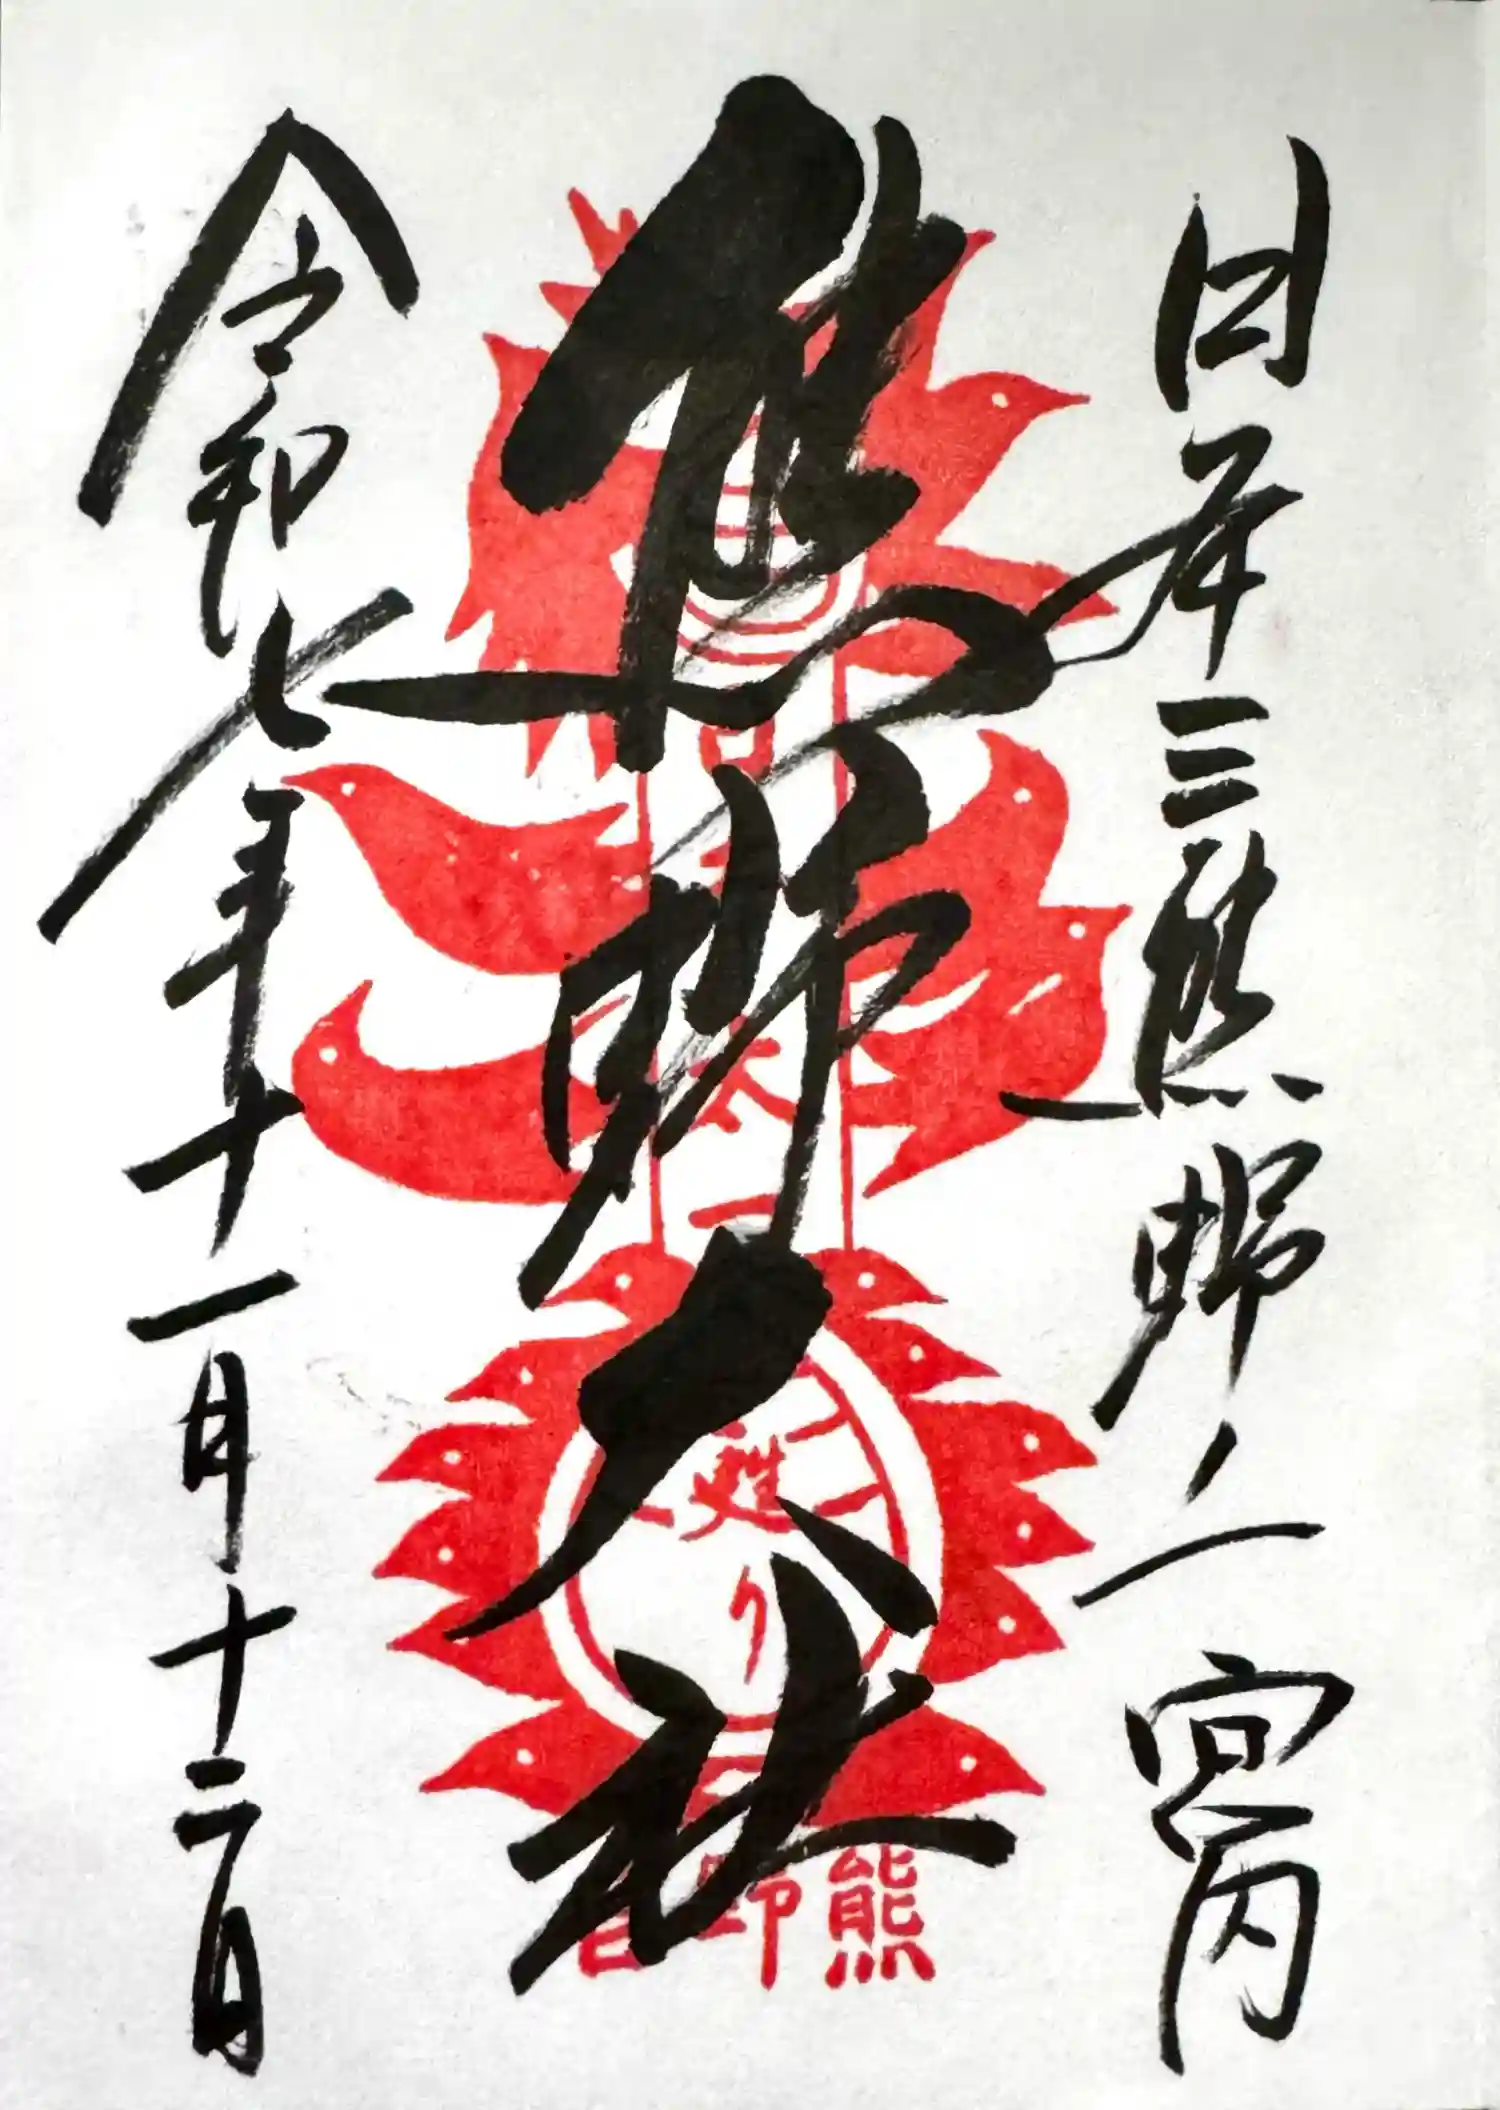 日本三熊野之一 宮内
熊野大社
令和七年十一月十二日
甦
り
熊
野